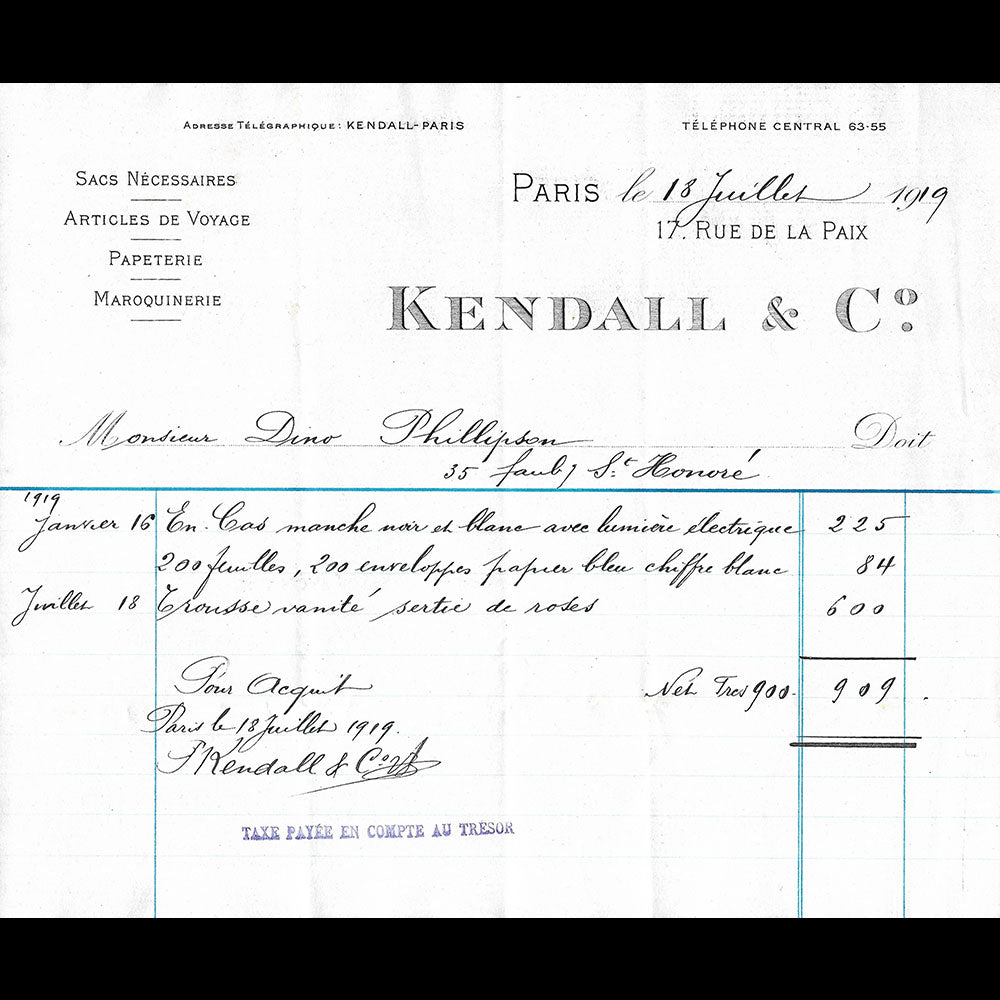 Adresse Télégraphique: KENDALL-PARIS
TÉLÉPHONE CENTRAL 63-55
Sacs Nécessaires
Articles de Voyage
Papeterie
Maroquinerie
Paris le 18 Juillet 1919
17, Rue de la Paix
Kendall & Co.
Monsieur Dino Phillipson Doit
35 faubg St. Honoré
1919
Janvier 16 En. Cas manche noir et blanc avec lumière électrique 225
200 feuilles, 200 enveloppes papier bleu chiffre blanc 84
Juillet 18 Trousse vanité sertie de roses 600
Pour Acquit Net Frcs 900. 909.
Paris le 18 Juillet 1919.
Kendall & Co.
TAXE PAYÉE EN COMPTE AU TRESOR